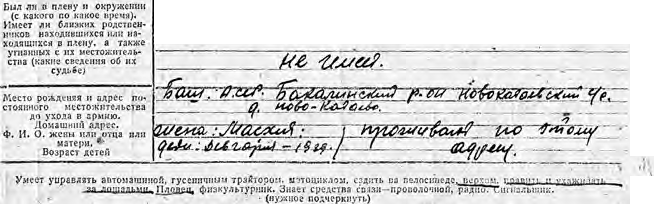 Был ли в плену и окружении
(с какого по какое время).
Имеет ли близких родствен-
ников находившихся или на-
ходящихся в плену, а также
угнанных с их местожитель-
ства (какие сведения об их
судьбе)
не имел.
Место рождения и адрес по-
стоянного местожительства
до ухода в армию.
Домашний адрес.
Ф. И. О. жены или отца или
матери.
Возраст детей
Баш. АССР. Бакалинский р-он Новокатаевский с/с.
д. Ново-Катаево.
жена: Масхия: проживают по этому
дети: 1939. адресу.
Умеет управлять автомашиной, гусеничным трактором, мотоциклом, ездить на велосипеде, верхом, править и ухаживать
за лошадьми, Пловец, физкультурник. Знает средства связи—проволочной, радио. Сигнальник.
(нужное подчеркнуть)